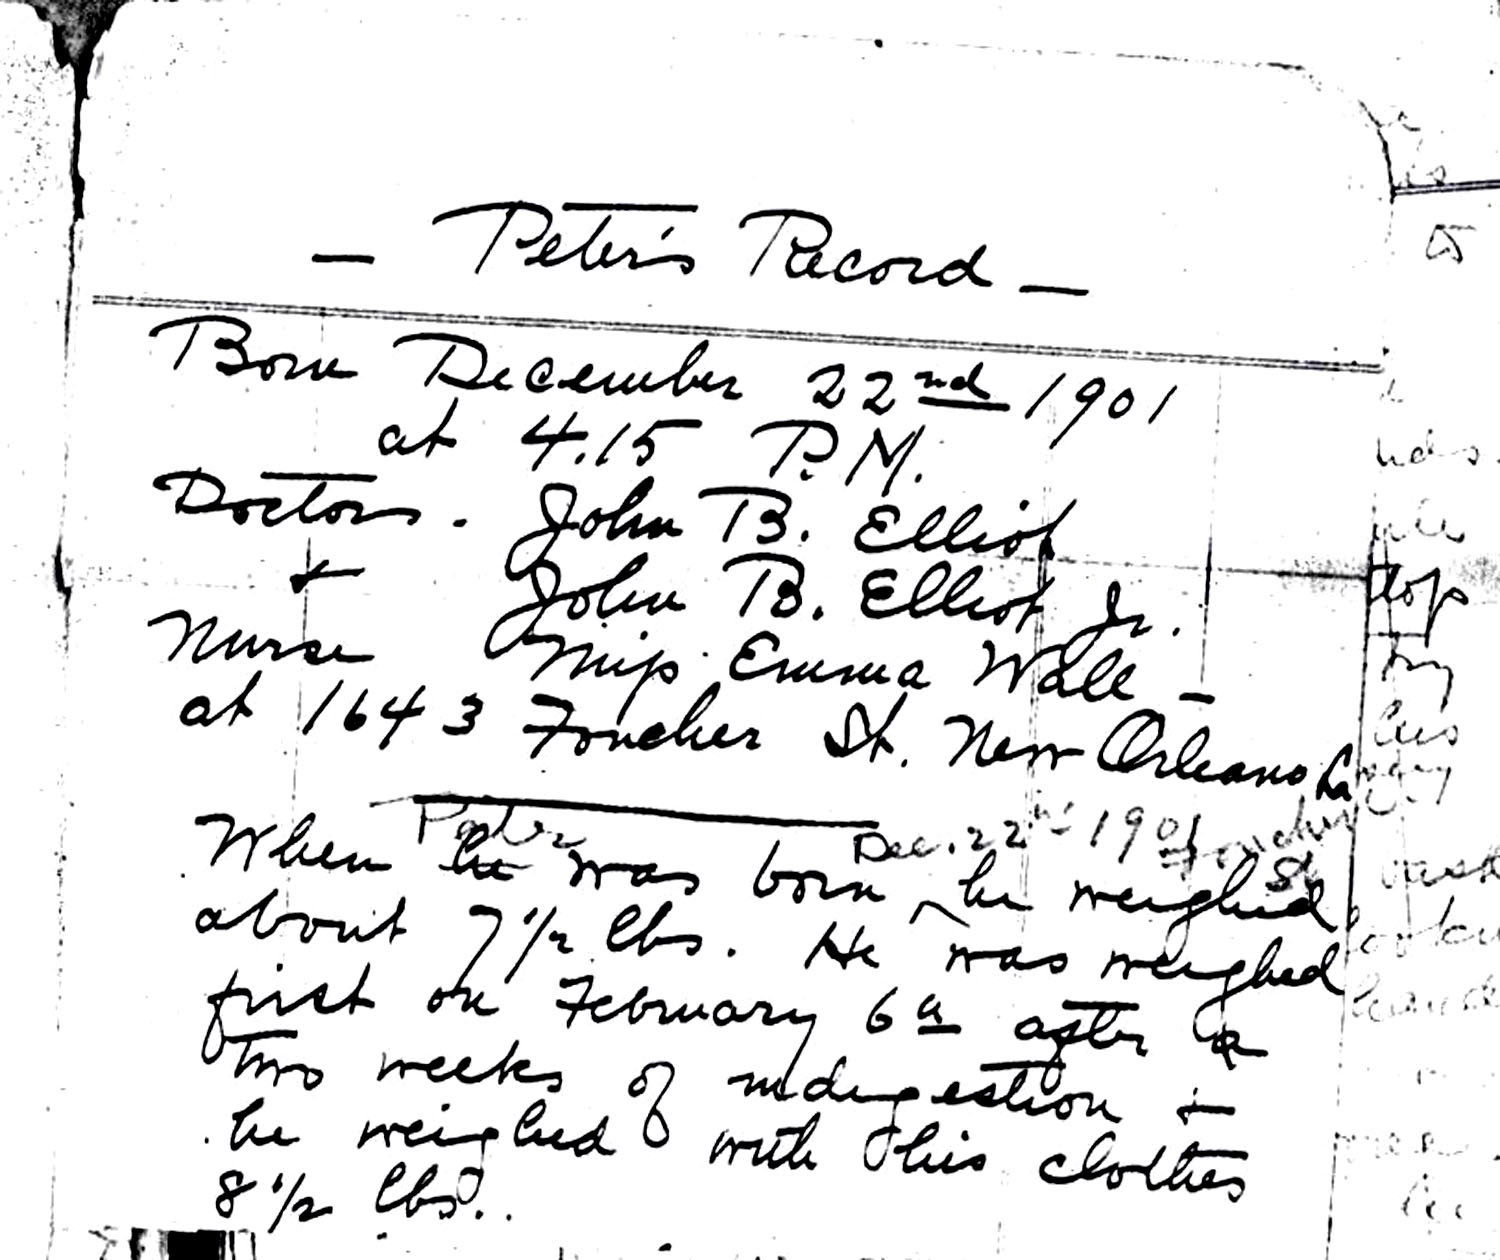 — Peter's Record —
Born December 22nd 1901
at 4.15 P.M.
Doctors. John B. Elliot
+ John B. Elliot Jr.
Nurse Miss Emma Wall —
at 1643 Foucher St. New Orleans La
Peter Dec. 22nd 1901 Foucher St
When he was born ^ he weighed
about 7 1/2 lbs. He was weighed
first on February 6th after a
two weeks of indigestion +
he weighed with his clothes
8 1/2 lbs.
top
try